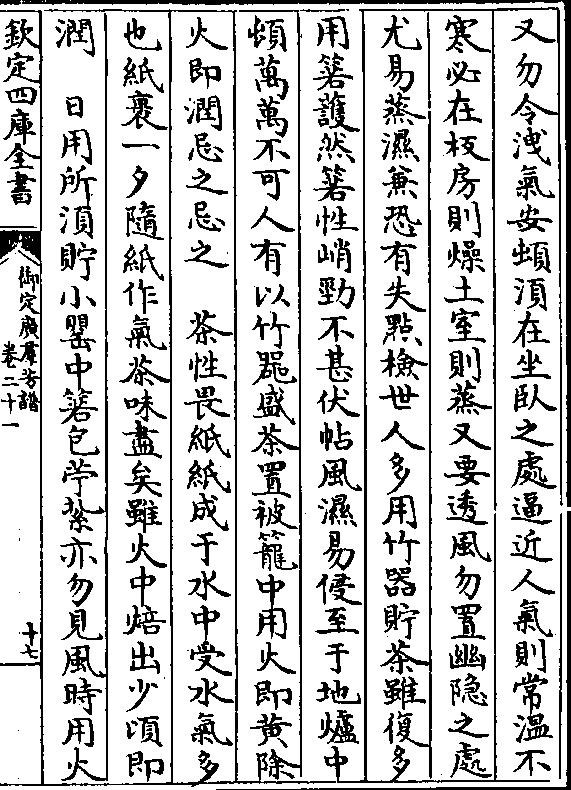 又勿令洩氣安頓須在坐臥之處逼近人氣則常溫不
寒必在板房則燥土室則蒸又要透風勿置幽隐之處
尤易蒸濕兼恐有失點檢世人多用竹器貯茶雖復多
用箬護然箬性峭勁不甚伏帖風濕易侵至于地爐中
頓萬萬不可人有以竹器盛茶置被籠中用火即黄除
火即潤忌之忌之　茶性畏紙紙成于水中受水氣多
也紙裹一夕隨紙作氣茶味盡矣雖火中焙出少頃即
潤　日用所須貯小罌中箬包苧紮亦勿見風時用火
欽定四庫全書
御定廣羣芳譜
卷二十一
十七